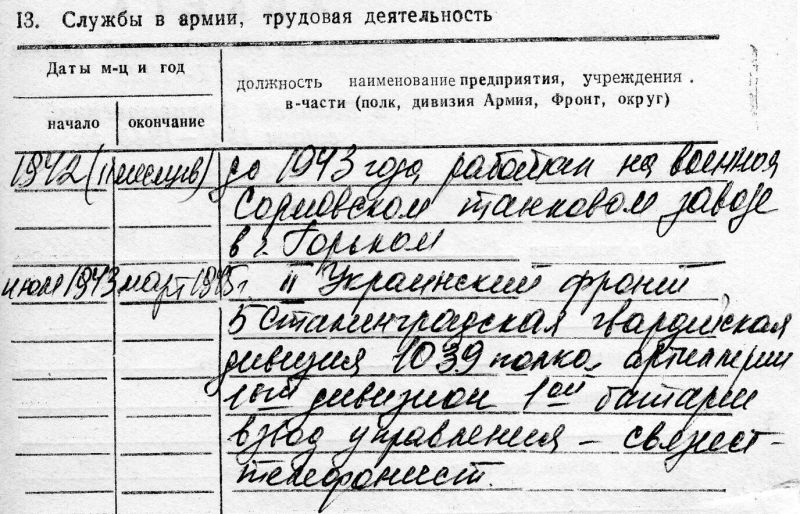 13. Службы в армии, трудовая деятельность
Даты м-ц и год
должность наименование предприятия, учреждения.
в-части (полк, дивизия Армия, Фронт, округ)
начало окончание
1942 (11 месяцев) до 1943 года работал на военном
Сормовском танковом заводе
в г. Горьком
июля 1943 март 1945 г. II Украинский фронт
5 Сталинградская гвардейская
дивизия 1039 полка, артиллерии
1ый дивизион 1ой батареи
взвод управления – связист-
телефонист.